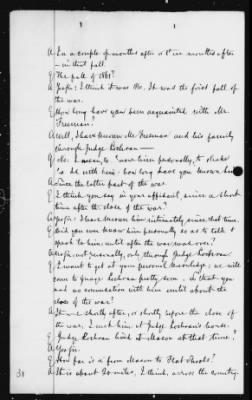 A In a couple of months after or six months after
- in that fall.
Q The fall of 1861?
A Yes sir; I think it was so. It was the first fall of
the war.
Q How long have you been acquainted with Mr.
Freeman?
A Well, I have known Mr. Freeman and his family
through Judge Cochran—
Q No. I mean, to know him personally, to shake
hands with him - how long have you known him
A Since the latter part of the war
Q I think you say in your affidavit, since a short
time after the close of the war?
A Yes sir: I have known him intimately since that time.
Q Did you ever know him personally so as to talk &
speak to him, until after the war was over?
A No sir, not personally, only through Judge Cochran.
Q I want to get at your personal knowledge; we will
come to Judge Cochran pretty soon. in that you
had no connection with him until about the
close of the war?
A It was shortly after, or shortly before the close of
the war. I met him at Judge Cochran's house.
Q Judge Cochran lived at Macon at that time?
A Yes sir.
Q How far is it from Macon to Flat Shoals?
A It is about 20 miles, I think, across the country.